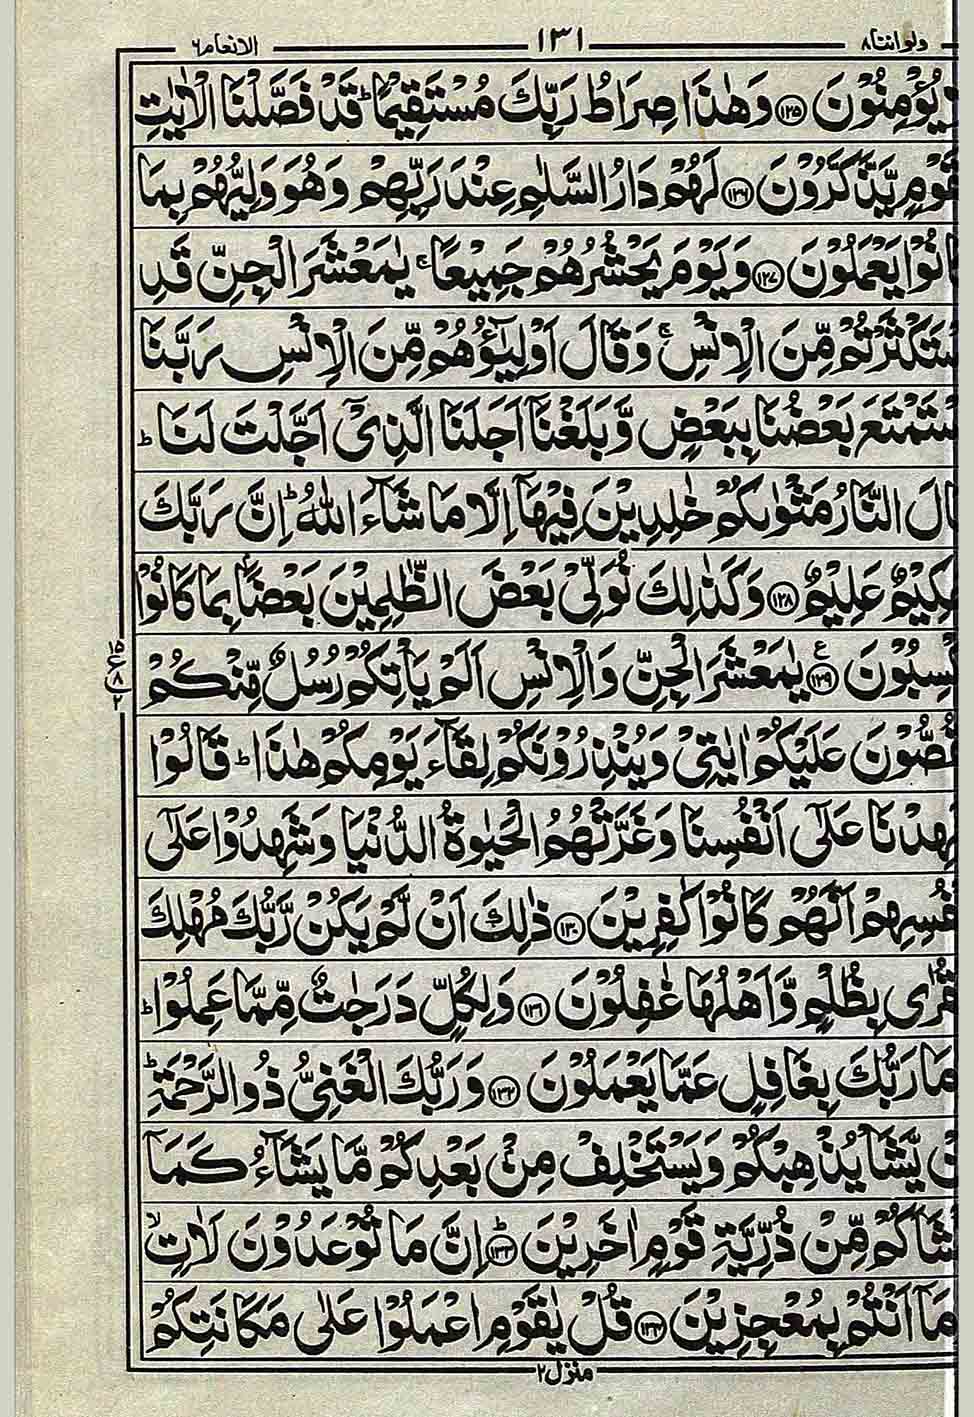 ولواننا ٨ ١٣١ الانعام ٦
يُؤْمِنُوْنَ ﴿۱۲۵﴾ وَهٰذَا صِرَاطُ رَبِّكَ مُسْتَقِيْمًا ؕ قَدْ فَصَّلْنَا الْاٰيٰتِ
يَّذَّكَّرُوْنَ ﴿۱۲۶﴾ لَهُمْ دَارُ السَّلٰمِ عِنْدَ رَبِّهِمْ وَهُوَ وَلِيُّهُمْ بِمَا
يَعْمَلُوْنَ ﴿۱۲۷﴾ وَيَوْمَ يَحْشُرُهُمْ جَمِيْعًا ۚ يٰمَعْشَرَ الْجِنِّ قَدِ
سْتَكْثَرْتُمْ مِّنَ الْاِنْسِ ۚ وَقَالَ اَوْلِيٰٓؤُهُمْ مِّنَ الْاِنْسِ رَبَّنَا
سْتَمْتَعَ بَعْضُنَا بِبَعْضٍ وَّبَلَغْنَآ اَجَلَنَا الَّذِيْٓ اَجَّلْتَ لَنَا ؕ
الَ النَّارُ مَثْوٰىكُمْ خٰلِدِيْنَ فِيْهَآ اِلَّا مَا شَآءَ اللّٰهُ ؕ اِنَّ رَبَّكَ
كِيْمٌ عَلِيْمٌ ﴿۱۲۸﴾ وَكَذٰلِكَ نُوَلِّيْ بَعْضَ الظّٰلِمِيْنَ بَعْضًا بِمَا كَانُوْا
سِبُوْنَ ﴿۱۲۹﴾ ع يٰمَعْشَرَ الْجِنِّ وَالْاِنْسِ اَلَمْ يَاْتِكُمْ رُسُلٌ مِّنْكُمْ
١٥ ع ٨ ٢
صُّوْنَ عَلَيْكُمْ اٰيٰتِيْ وَيُنْذِرُوْنَكُمْ لِقَآءَ يَوْمِكُمْ هٰذَا ؕ قَالُوْا
هِدْنَا عَلٰٓى اَنْفُسِنَا وَغَرَّتْهُمُ الْحَيٰوةُ الدُّنْيَا وَشَهِدُوْا عَلٰٓى
نْفُسِهِمْ اَنَّهُمْ كَانُوْا كٰفِرِيْنَ ﴿۱۳۰﴾ ذٰلِكَ اَنْ لَّمْ يَكُنْ رَّبُّكَ مُهْلِكَ
قُرٰى بِظُلْمٍ وَّاَهْلُهَا غٰفِلُوْنَ ﴿۱۳۱﴾ وَلِكُلٍّ دَرَجٰتٌ مِّمَّا عَمِلُوْا ؕ
مَا رَبُّكَ بِغَافِلٍ عَمَّا يَعْمَلُوْنَ ﴿۱۳۲﴾ وَرَبُّكَ الْغَنِيُّ ذُو الرَّحْمَةِ ؕ
نْ يَّشَاْ يُذْهِبْكُمْ وَيَسْتَخْلِفْ مِنْۢ بَعْدِكُمْ مَّا يَشَآءُ كَمَآ
شَاَكُمْ مِّنْ ذُرِّيَّةِ قَوْمٍ اٰخَرِيْنَ ﴿۱۳۳﴾ ؕ اِنَّ مَا تُوْعَدُوْنَ لَاٰتٍ ۙ
مَآ اَنْتُمْ بِمُعْجِزِيْنَ ﴿۱۳۴﴾ قُلْ يٰقَوْمِ اعْمَلُوْا عَلٰى مَكَانَتِكُمْ
منزل ٢